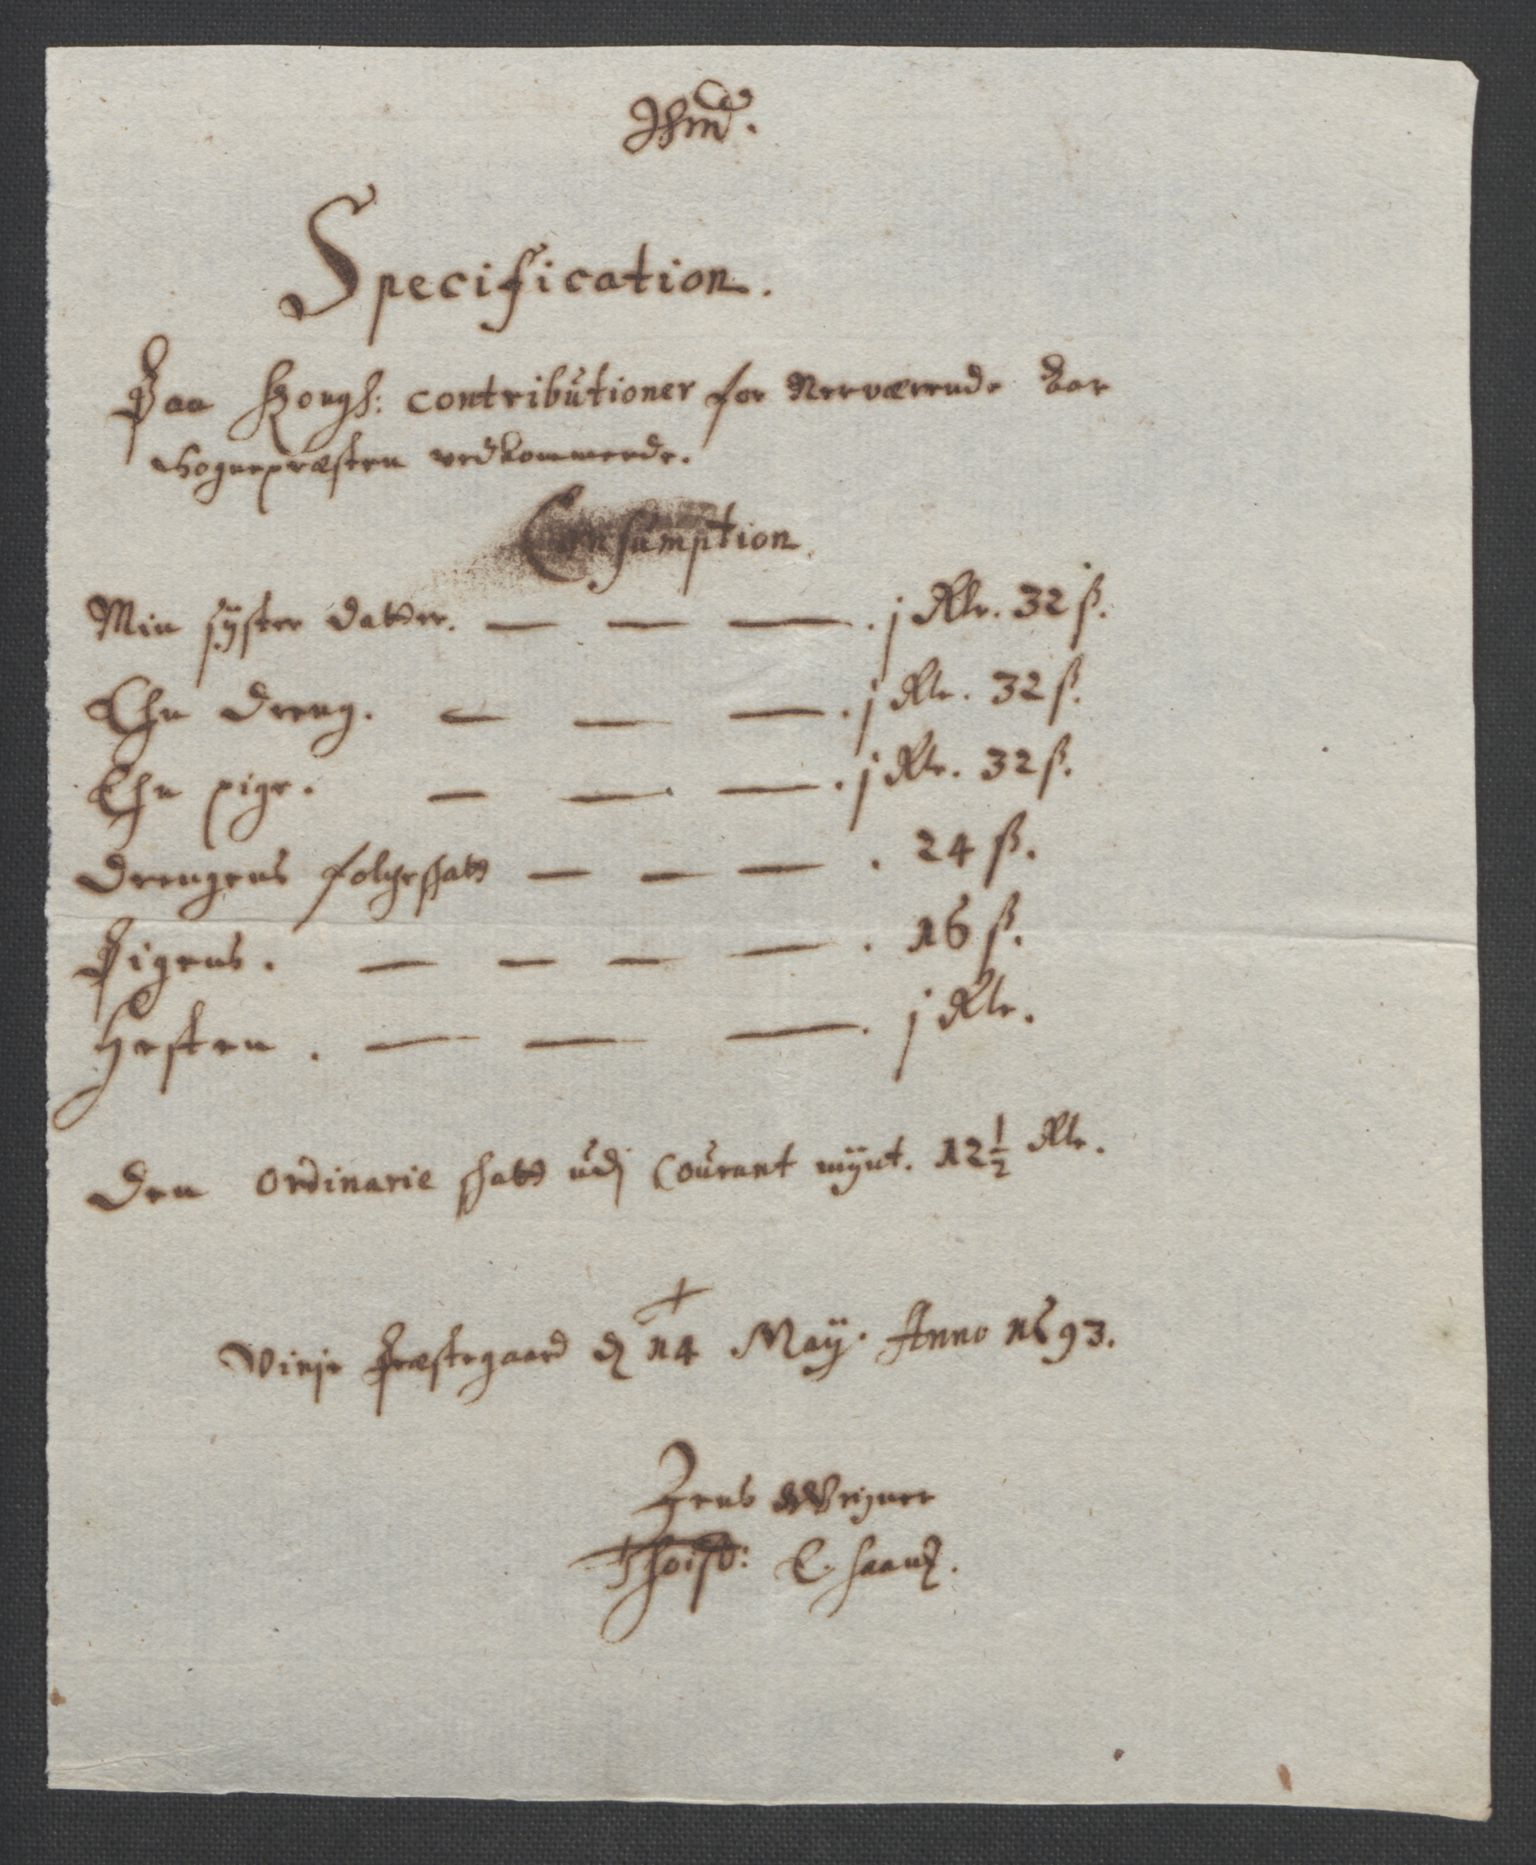 Specification.
Paa Kongl: contributioner for Nerværende Aar
Sognepræsten vedkommende.
Consumption
Min syster datter. — — — . j Rlr. 32 ß.
Ehn dreng. — — — . j Rlr. 32 ß.
Ehn pige. — — — . j Rlr. 32 ß.
Drengens folcheskatt — — — . 24 ß.
Pigens. — — — — . 16 ß.
Hesten. — — — . j Rlr.
Den ordinarie skatt udj Courant mynt. 12 1/2 Rlr.
Vinje Præstegaard d 14 May. Anno 1693.
Jens